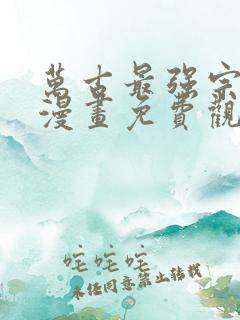 萬古最强宗
漫畫免費觀
咤咤咤
未经同意禁止转载